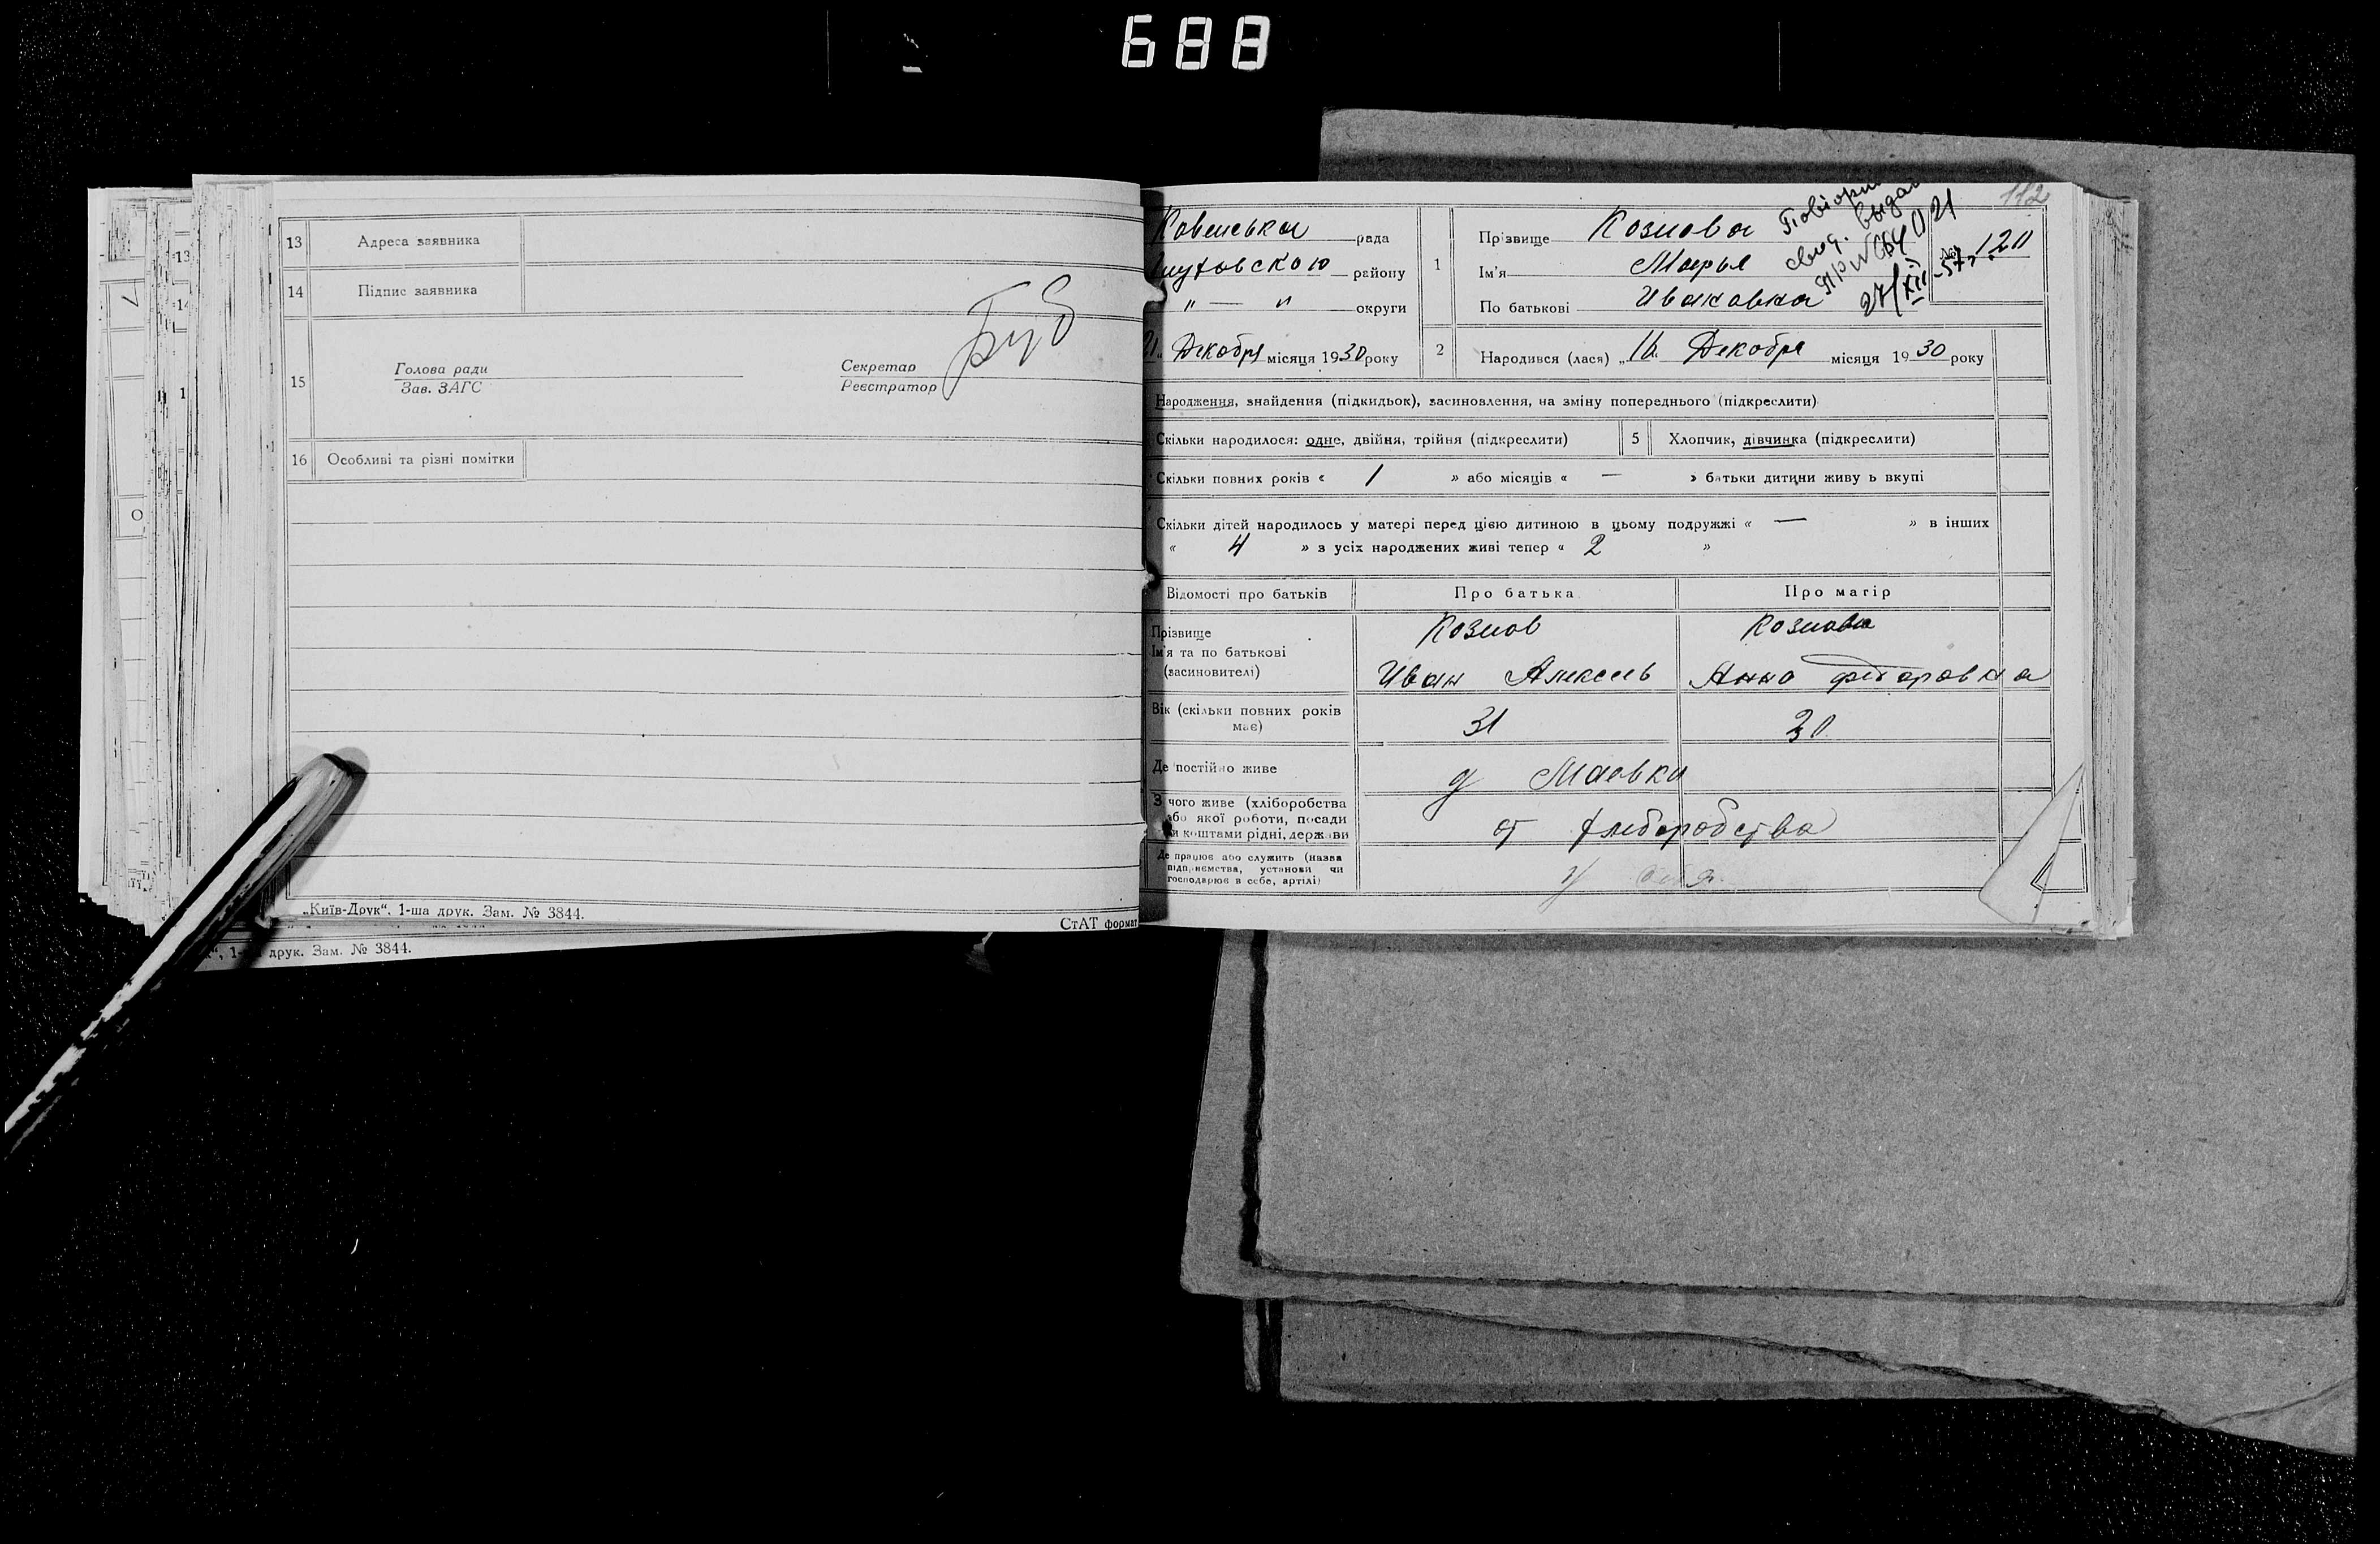 688
13 Адреса заявника
14 Підпис заявника
15 Голова ради
Зав. ЗАГС
Секретар
Реєстратор
16 Особливі та різні помітки
„Київ-Друк“. 1-ша друк. Зам. № 3844.
СтАТ формат
друк. Зам. № 3844.
112
рада
району
" — " округи
Декабря місяця 1930 року
1 Прізвище Козлова
Ім'я Марья
По батькові Ивановна
27/XII-57
№ 120
2 Народився (лася) „16 Декабря місяця 1930 року
Народження, знайдення (підкидьок), засиновлення, на зміну попереднього (підкреслити)
Скільки народилося: одне, двійня, трійня (підкреслити)
5 Хлопчик, дівчинка (підкреслити)
Скільки повних років « 1 » або місяців « — » батьки дитини живуть вкупі
Скільки дітей народилось у матері перед цією дитиною в цьому подружжі « — » в інших
« 4 » з усіх народжених живі тепер « 2 »
Відомості про батьків
Про батька
Про матір
Прізвище
Ім'я та по батькові
(засиновителі)
Козлов
Иван Алексеев
Козлова
Анна Федоровна
Вік (скільки повних років має)
31
30
Де постійно живе
д Маевка
З чого живе (хліборобства
або якої роботи, посади
чи коштами рідні, держави
от хлеборобства
Де працює або служить (назва
підприємства, установи чи
господарює в себе, артілі)